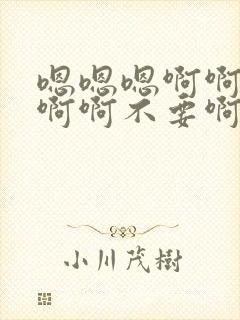 嗯嗯嗯啊啊
啊啊不要啊
小川茂樹